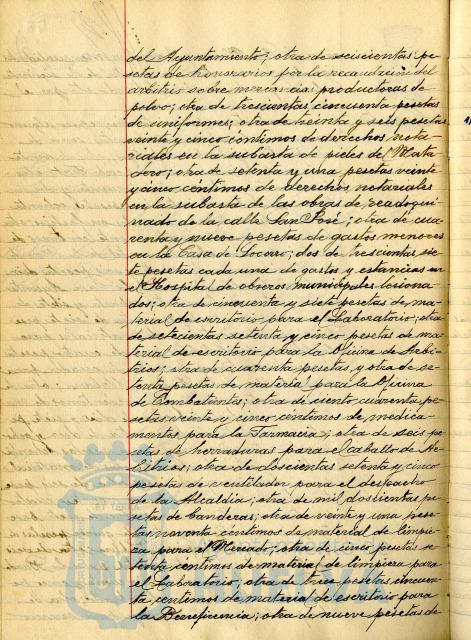 del Ayuntamiento; otra de seiscientas pe-
setas de honorarios por la recaudación del
arbitrio sobre mercancias productoras de
polvo; otra de trescientas cincuenta pesetas
de uniformes; otra de treinta y seis pesetas
veinte y cinco céntimos de derechos nota-
riales en la subasta de pieles del Mata-
dero; otra de setenta y una pesetas veinte
y cinco céntimos de derechos notariales
en la subasta de las obras de readoqui-
nado de la calle San José; otra de cua-
renta y nueve pesetas de gastos menores
en la Casa de Socorro; dos de trescientas sie-
te pesetas cada una de gastos y estancias en
el Hospital de obreros municipales lesiona-
dos; otra de cincuenta y siete pesetas de ma-
terial de escritorio para el Laboratorio; otra
de setecientas setenta y cinco pesetas de ma-
terial de escritorio para la Oficina de Arbi-
trios; otra de cuarenta pesetas, y otra de se-
tenta pesetas de material para la Oficina
de Combatientes; otra de ciento cuarenta pe-
setas veinte y cinco céntimos de medica-
mentos para la Farmacia; otra de seis pe-
setas de herraduras para el caballo de Ar-
bitrios; otra de doscientas setenta y cinco
pesetas de ventilador para el despacho
de la Alcaldía; otra de mil doscientas pe-
setas de banderas; otra de veinte y una pese-
tas noventa centimos de material de limpie-
za para el Mercado; otra de cinco pesetas se-
tenta centimos de material de limpieza para
el Laboratorio; otra de trece pesetas cincuen-
ta centimos de material de escritorio para
la Beneficencia; otra de nueve pesetas de